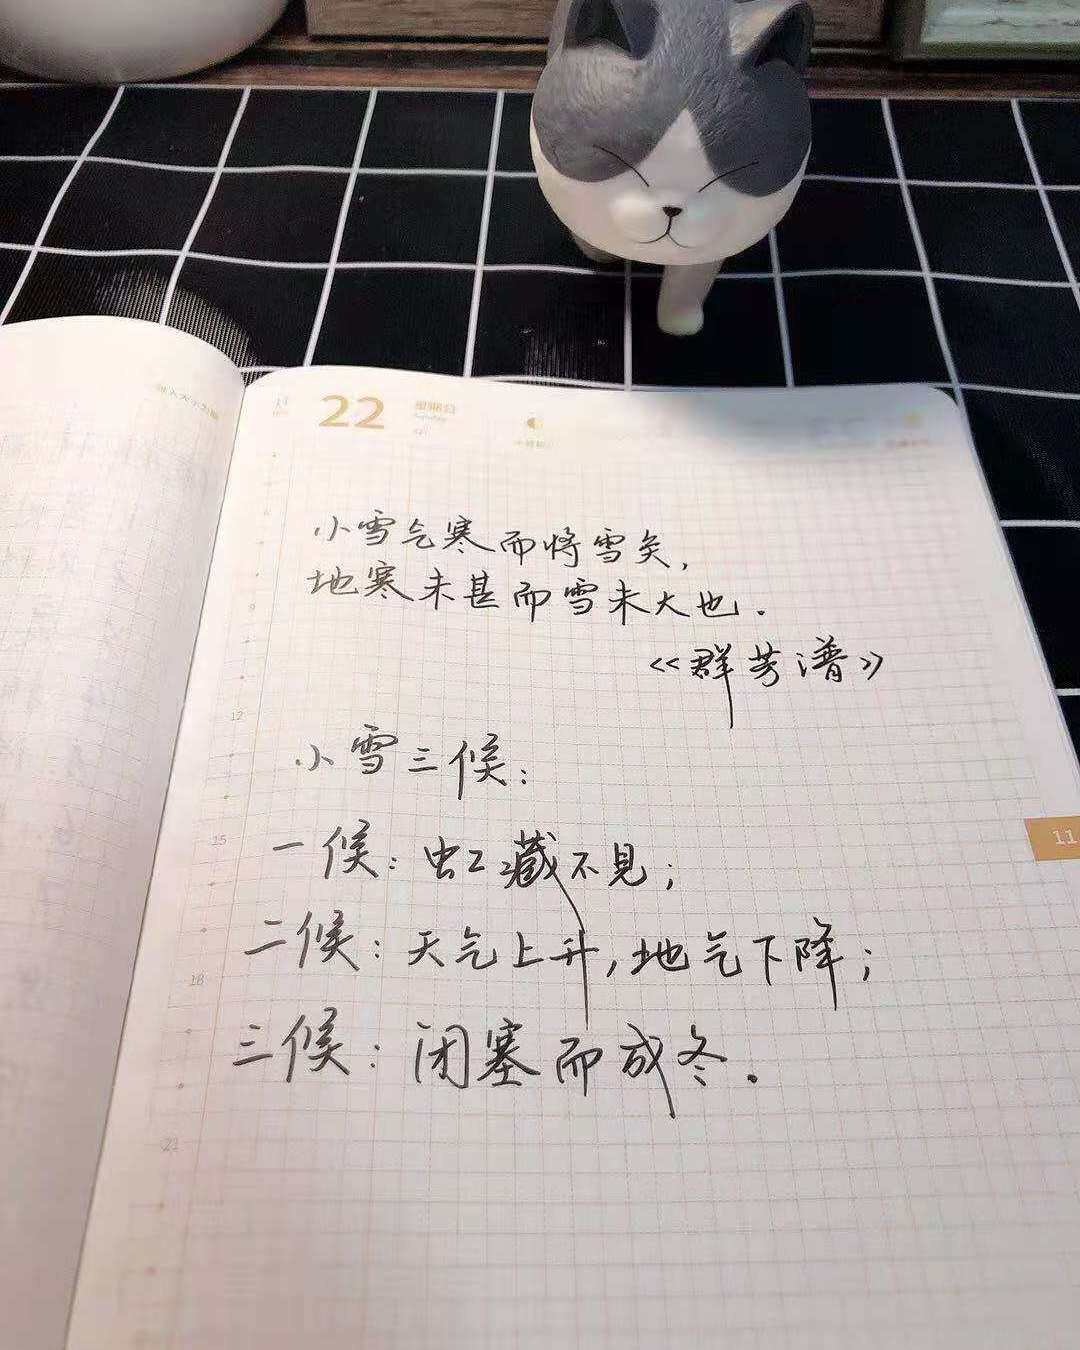 22
小雪气寒而将雪矣，
地寒未甚而雪未大也．
《群芳谱》
小雪三候：
一候：虹藏不见；
二候：天气上升，地气下降；
三候：闭塞而成冬．
12
15
18
21
11